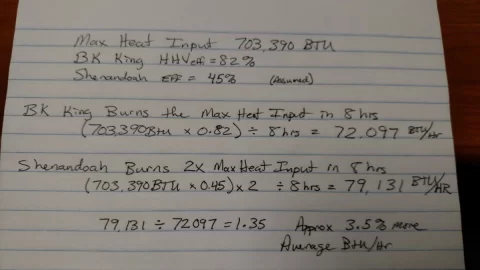 Max Heat Input 703,390 BTU
BK King HHVeff = 82%
Shenandoah EFF = 45% (Assumed)
BK King Burns the Max Heat Input in 8 hrs
(703,390Btu × 0.82) ÷ 8 hrs = 72,097 BTU/Hr
Shenandoah Burns 2x Max Heat Input in 8 hrs
(703,390 BTU × 0.45) × 2 ÷ 8 hrs = 79,131 BTU/HR
79,131 ÷ 72097 = 1.35 Approx 3.5% more
Average Btu/Hr